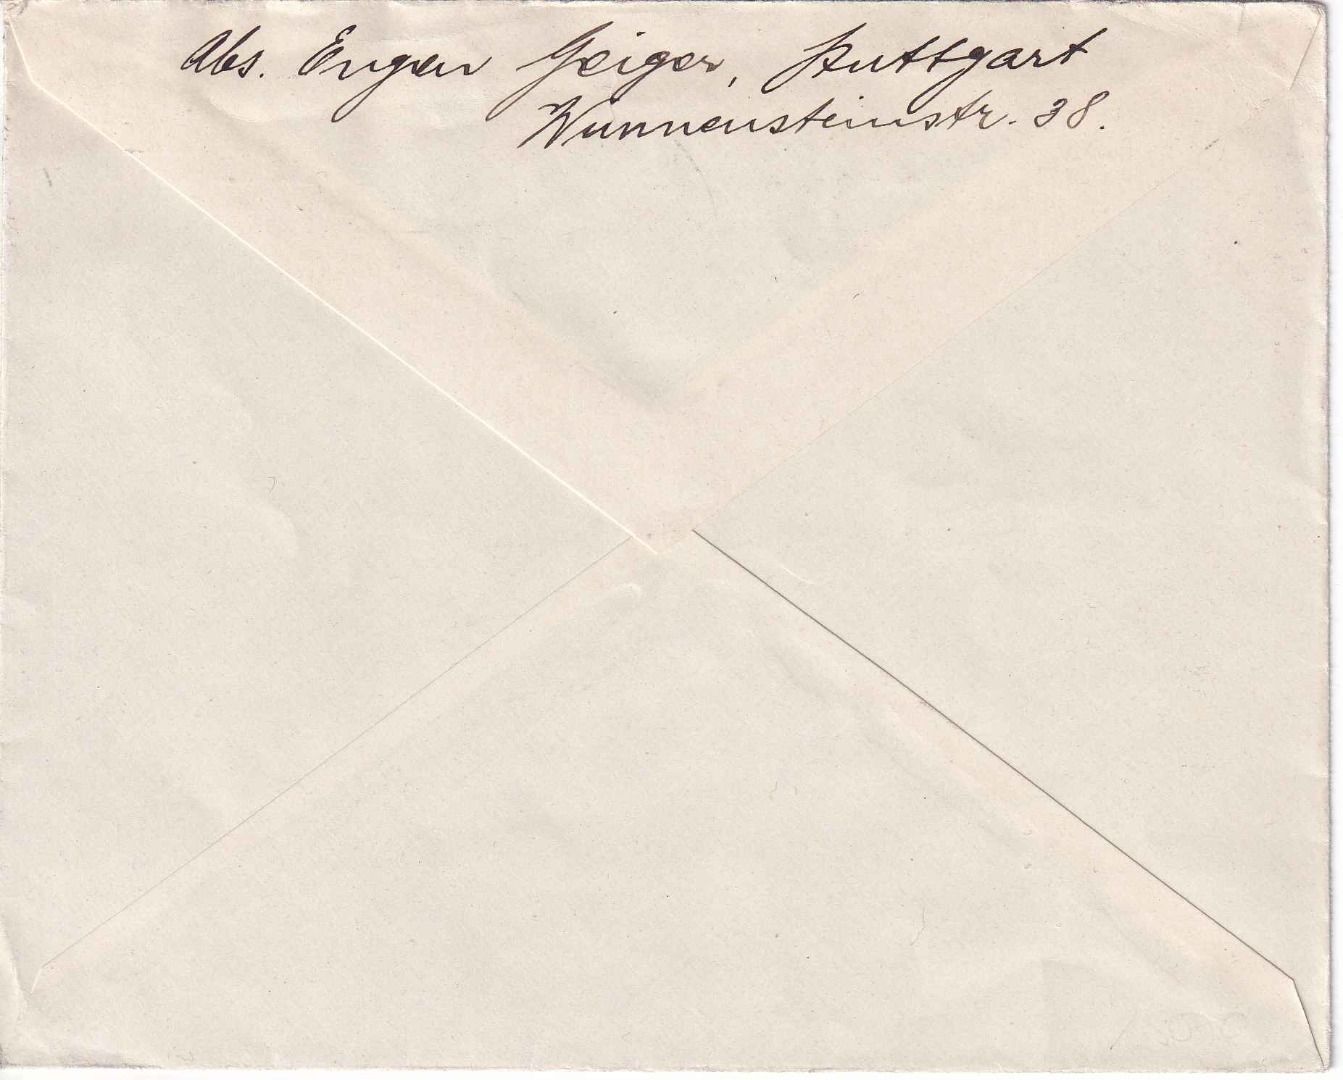 Abs. Eugen Geiger, Stuttgart
Wunnensteinstr. 38.